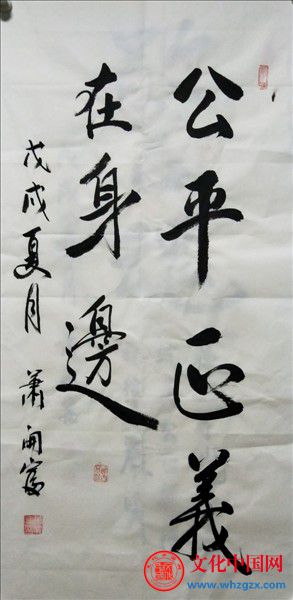 公平正義
在身邊
戊戌夏月
萧開富
文化中国网
www.whzgzx.com